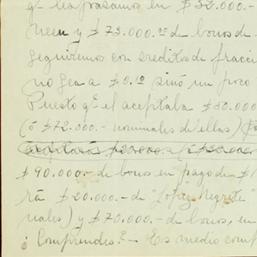 qe traspasamos en $ 50.000.-
y $ 72.000.00 de bonos de
seguiremos con creditos de fracci
no sea a $ 0.10 sinó un poco
Puesto qe él aceptaba $ 50.000
(ó $72.000.- nominales de ellas)
$ 90.000.- de bonos en pago de $ 1
rá $ 20.000.- de "Lopez Negrete"
nales) y $ 70.000.- de bonos, en
¿Comprendes?- Es medio comp